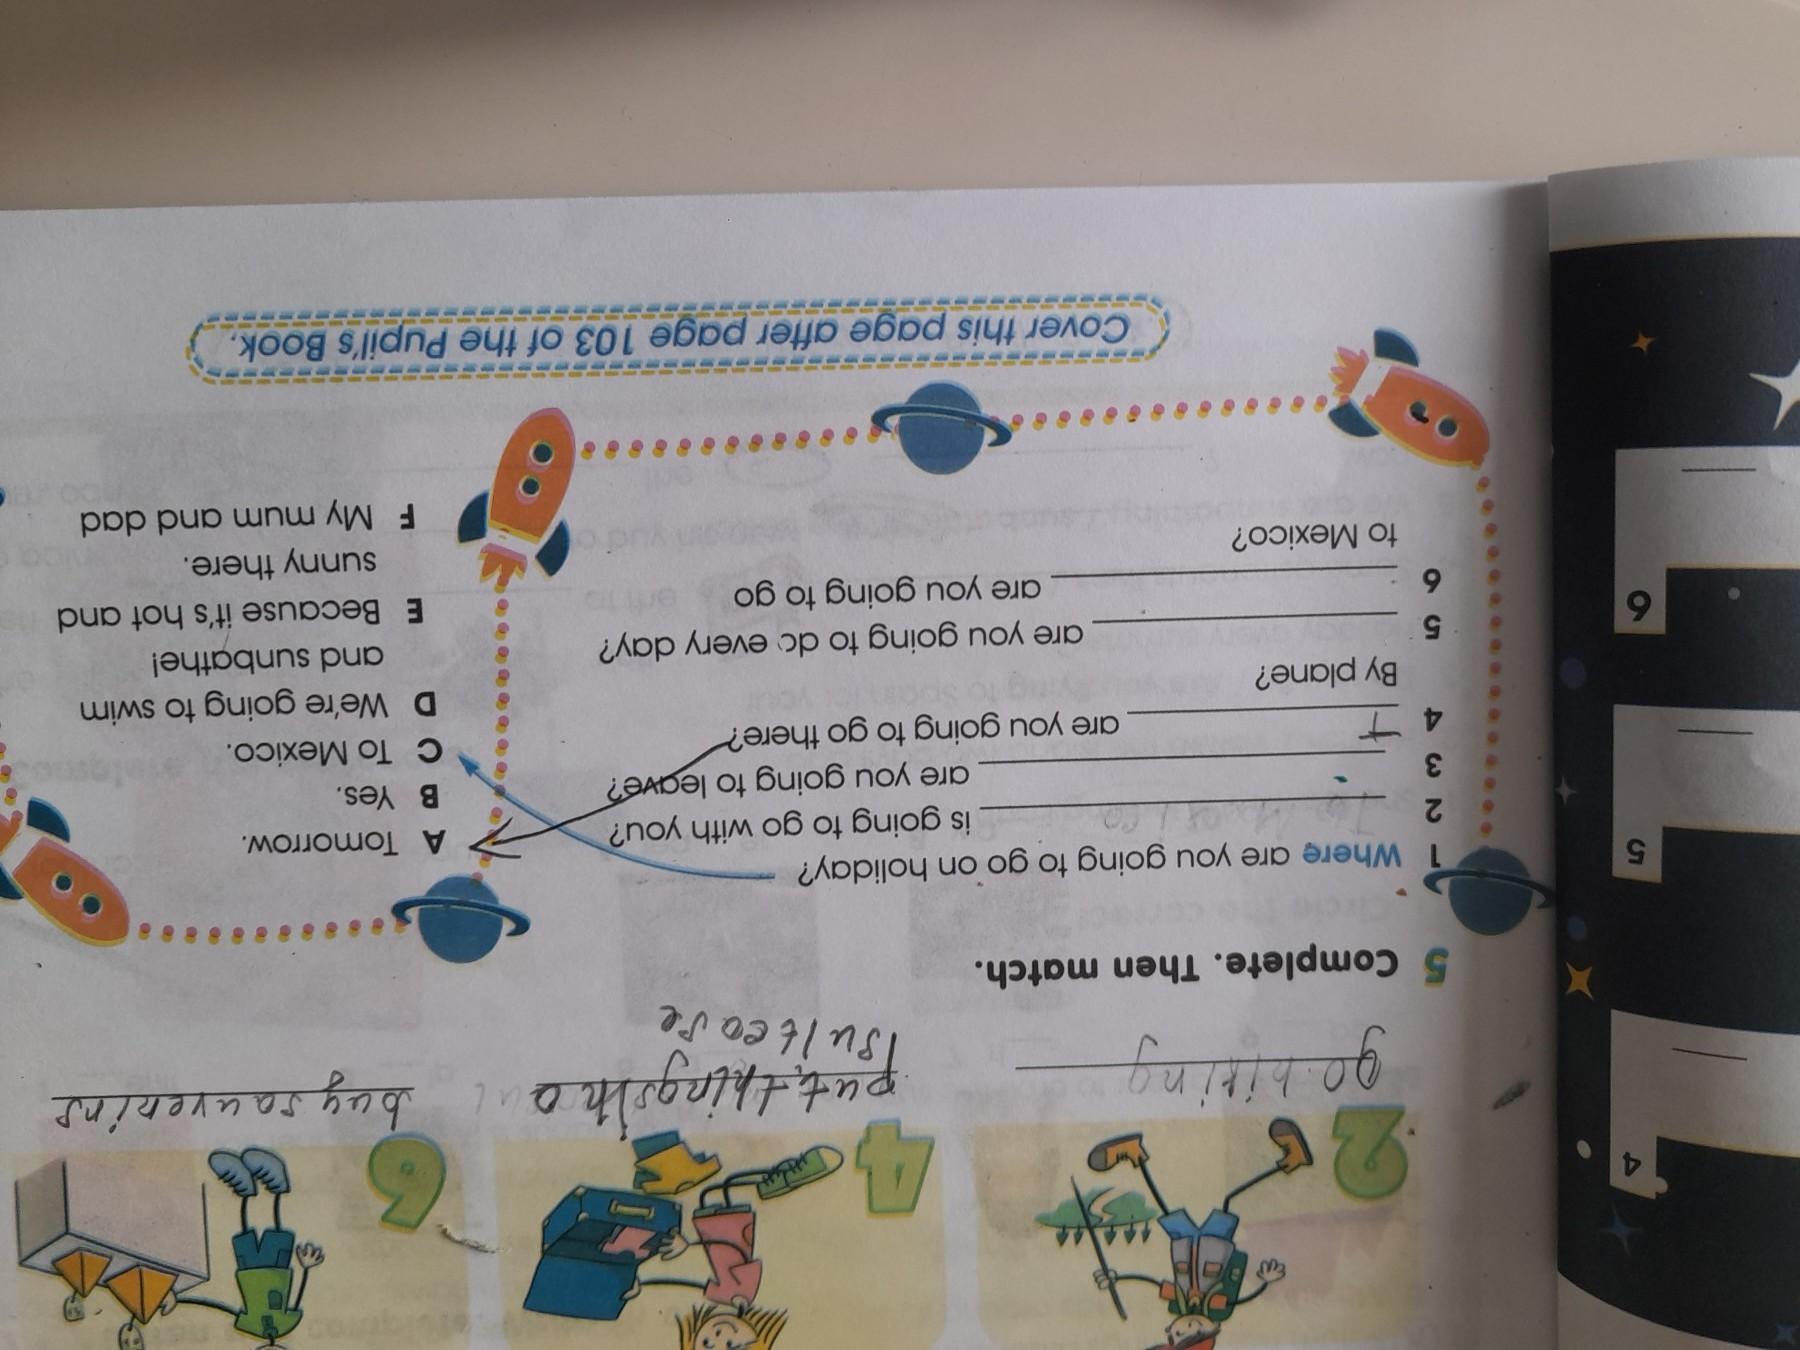 2
4
6
go hiking
put things in a
suitcase
buy sauvenirs
5 Complete. Then match.
1 Where are you going to go on holiday?
2 is going to go with you?
3 are you going to leave?
4 are you going to go there?
By plane?
5 are you going to do every day?
6 are you going to go
to Mexico?
A Tomorrow.
B Yes.
C To Mexico.
D We're going to swim
and sunbathe!
E Because it's hot and
sunny there.
F My mum and dad
Cover this page after page 103 of the Pupil's Book.
4
5
6